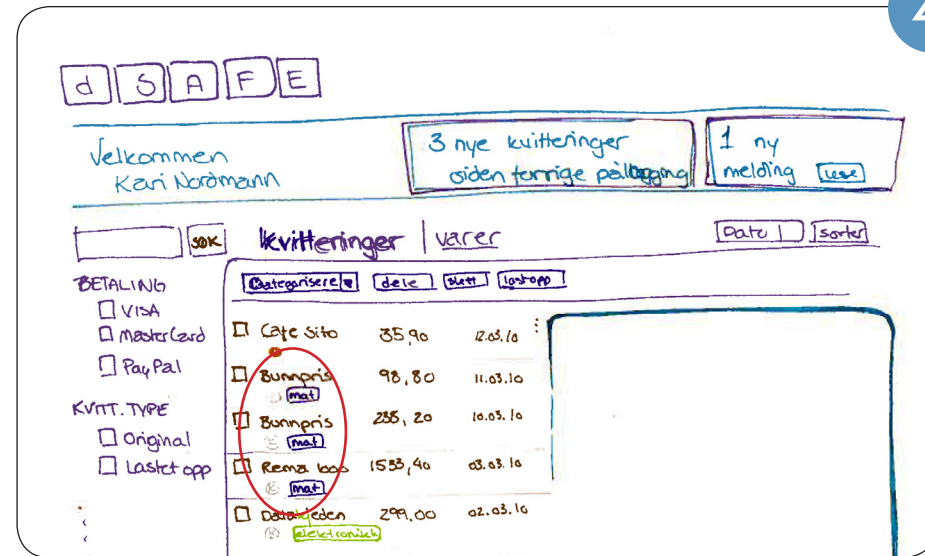 dSAFE
Velkommen
Kari Nordmann
3 nye kvitteringer
siden forrige pålogging
1 ny
melding lese
SØK
kvitteringer | varer
Dato sorter
BETALING
VISA
MasterCard
PayPal
KVITT. TYPE
Original
Lastet opp
Categorisere dele slett last opp
Cafe Sito 35,90 12.03.10
Bunnpris 98,80 11.03.10
mat
Bunnpris 235,20 10.03.10
K mat
Rema 1000 1533,40 03.03.10
K mat
Datakjeden 299,00 02.03.10
K elektronikk